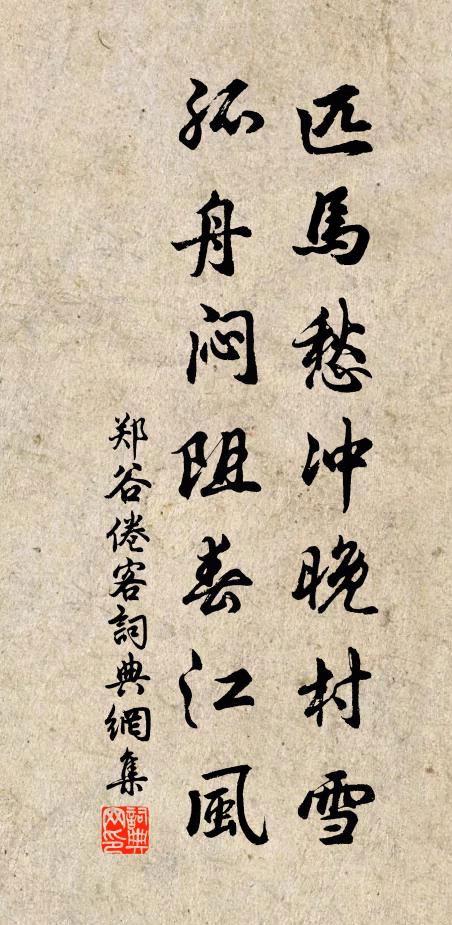 匹馬愁冲晚村雪
孤舟闷阻春江風
郑谷倦客詞典網集
詞典网印